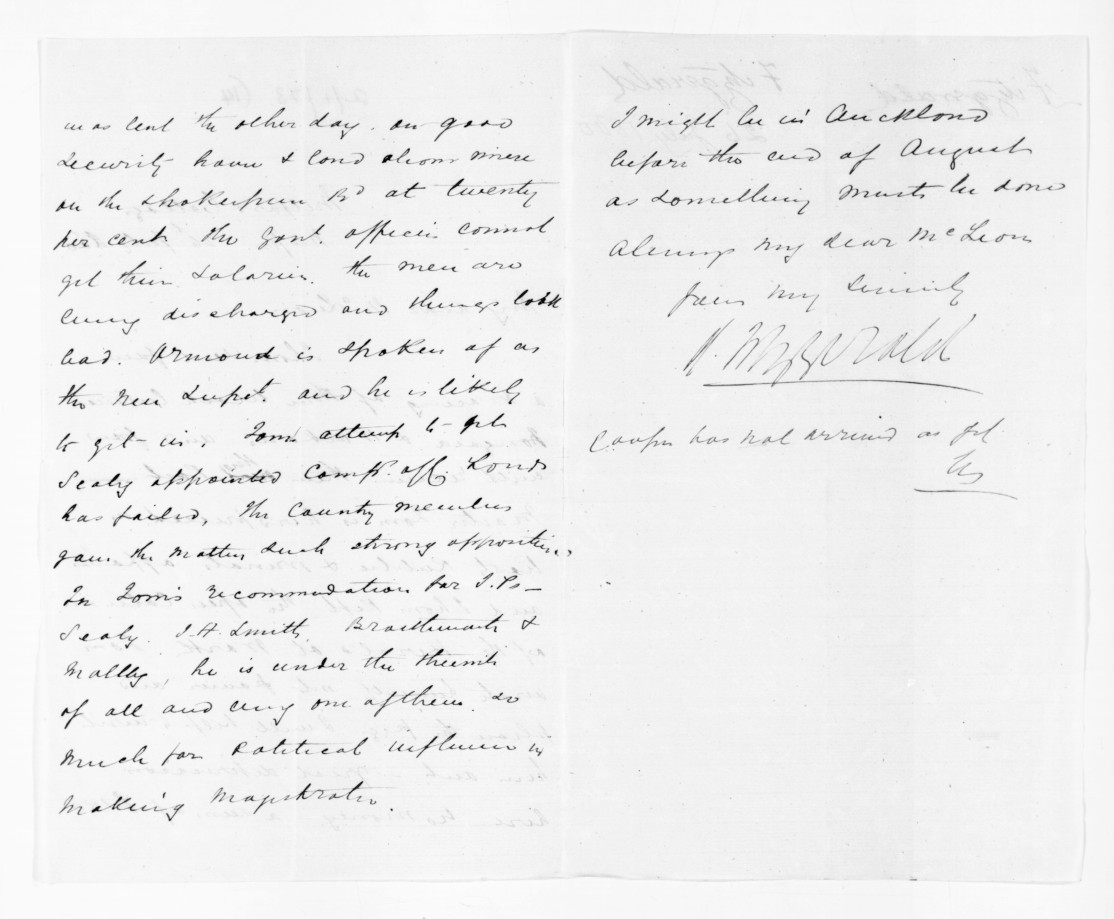 was lent the other day. on good
security house & land above mine
on the Shakespear Rd at twenty
per cent. the Govt. officers cannot
get their salaries. the men are
being discharged and things look
bad. Ormond is spoken of as
the new Supt. and he is likely
to get in. Tom's attempt to get
Sealy appointed Comr. of Lands
has failed, the Country members
gave the matter such strong opposition
In Tom's recommodation for J.Ps—
Sealy. J. H. Smith, Braithwaite &
Maltby, he is under the thumb
of all and every one of them. so
much for Political influence in
making Magistrates.
I might be in Auckland
before the end of August
as something must be done
always my dear McLean
yours very sincerely
FitzGerald
Cooper has not arrived as yet